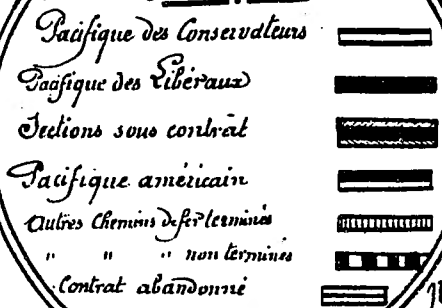 Pacifique des Conservateurs
Pacifique des Libéraux
Sections sous contrat
Pacifique américain
Autres Chemins de fer terminés
" " " non terminés
Contrat abandonné